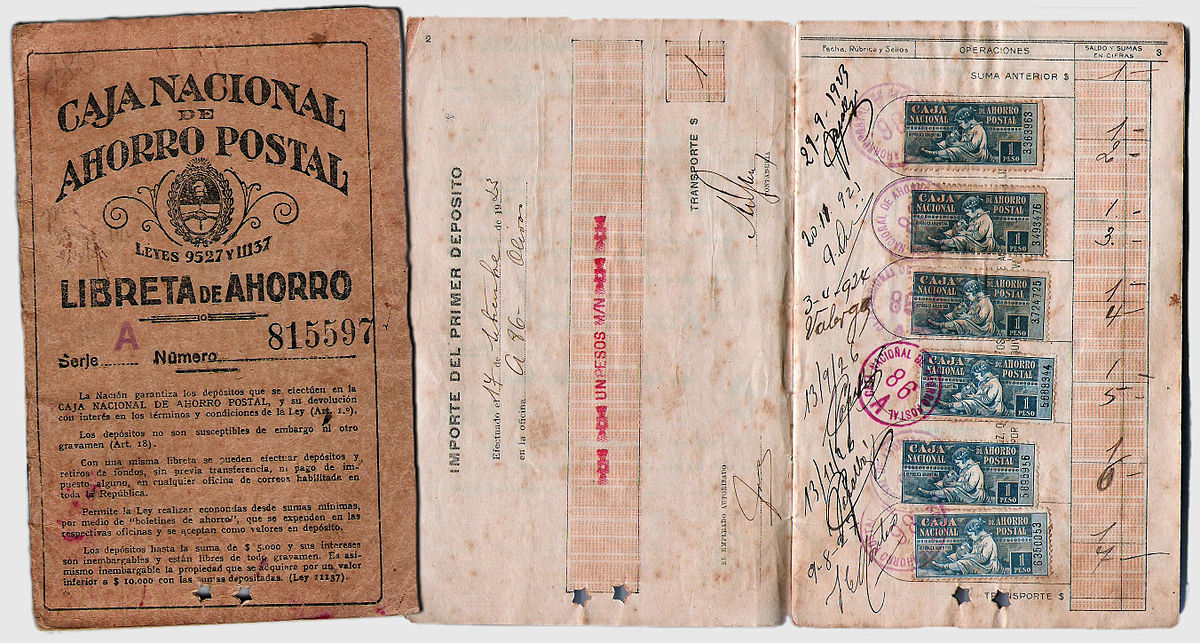 CAJA NACIONAL
DE
AHORRO POSTAL
LEYES 9527 Y 11137
LIBRETA DE AHORRO
Serie A Número 815597
La Nación garantiza los depósitos que se efectúen en la
CAJA NACIONAL DE AHORRO POSTAL, y su devolución
con interés en los términos y condiciones de la Ley (Art. 1.º).
Los depósitos no son susceptibles de embargo ni otro
gravamen (Art. 18).
Con una misma libreta se pueden efectuar depósitos y
retiros de fondos, sin previa transferencia, ni pago de im-
puesto alguno, en cualquier oficina de correos habilitada en
toda la República.
Permite la Ley realizar economías desde sumas mínimas,
por medio de "boletines de ahorro", que se expenden en las
respectivas oficinas y se aceptan como valores en depósito.
Los depósitos hasta la suma de $ 5.000 y sus intereses
son inembargables y están libres de todo gravamen. Es asi-
mismo inembargable la propiedad que se adquiera por un valor
inferior a $ 10.000 con las sumas depositadas. (Ley 11137).
2
IMPORTE DEL PRIMER DEPOSITO
Efectuado el 17 de Setiembre de 1923
en la oficina A 86 - Olivos
UN PESOS M/N
EL EMPLEADO AUTORIZADO
TRANSPORTE $
1
CONTADURIA
Fecha, Rúbrica y Sellos
OPERACIONES
SALDO Y SUMAS
EN CIFRAS
3
SUMA ANTERIOR $
1
29.9.1923
CAJA NACIONAL DE AHORRO POSTAL
1 PESO
3363963
1
2
20 11 923
CAJA NACIONAL DE AHORRO POSTAL
1 PESO
3493476
1
3
3-V-1924
CAJA NACIONAL DE AHORRO POSTAL
1 PESO
3724725
1
4
13/9/26
86
A
CAJA NACIONAL DE AHORRO POSTAL
1 PESO
568344
1
5
13/11/26
CAJA NACIONAL DE AHORRO POSTAL
1 PESO
5895956
1
6
9-8-27
CAJA NACIONAL DE AHORRO POSTAL
1 PESO
6350053
1
7
TRANSPORTE $